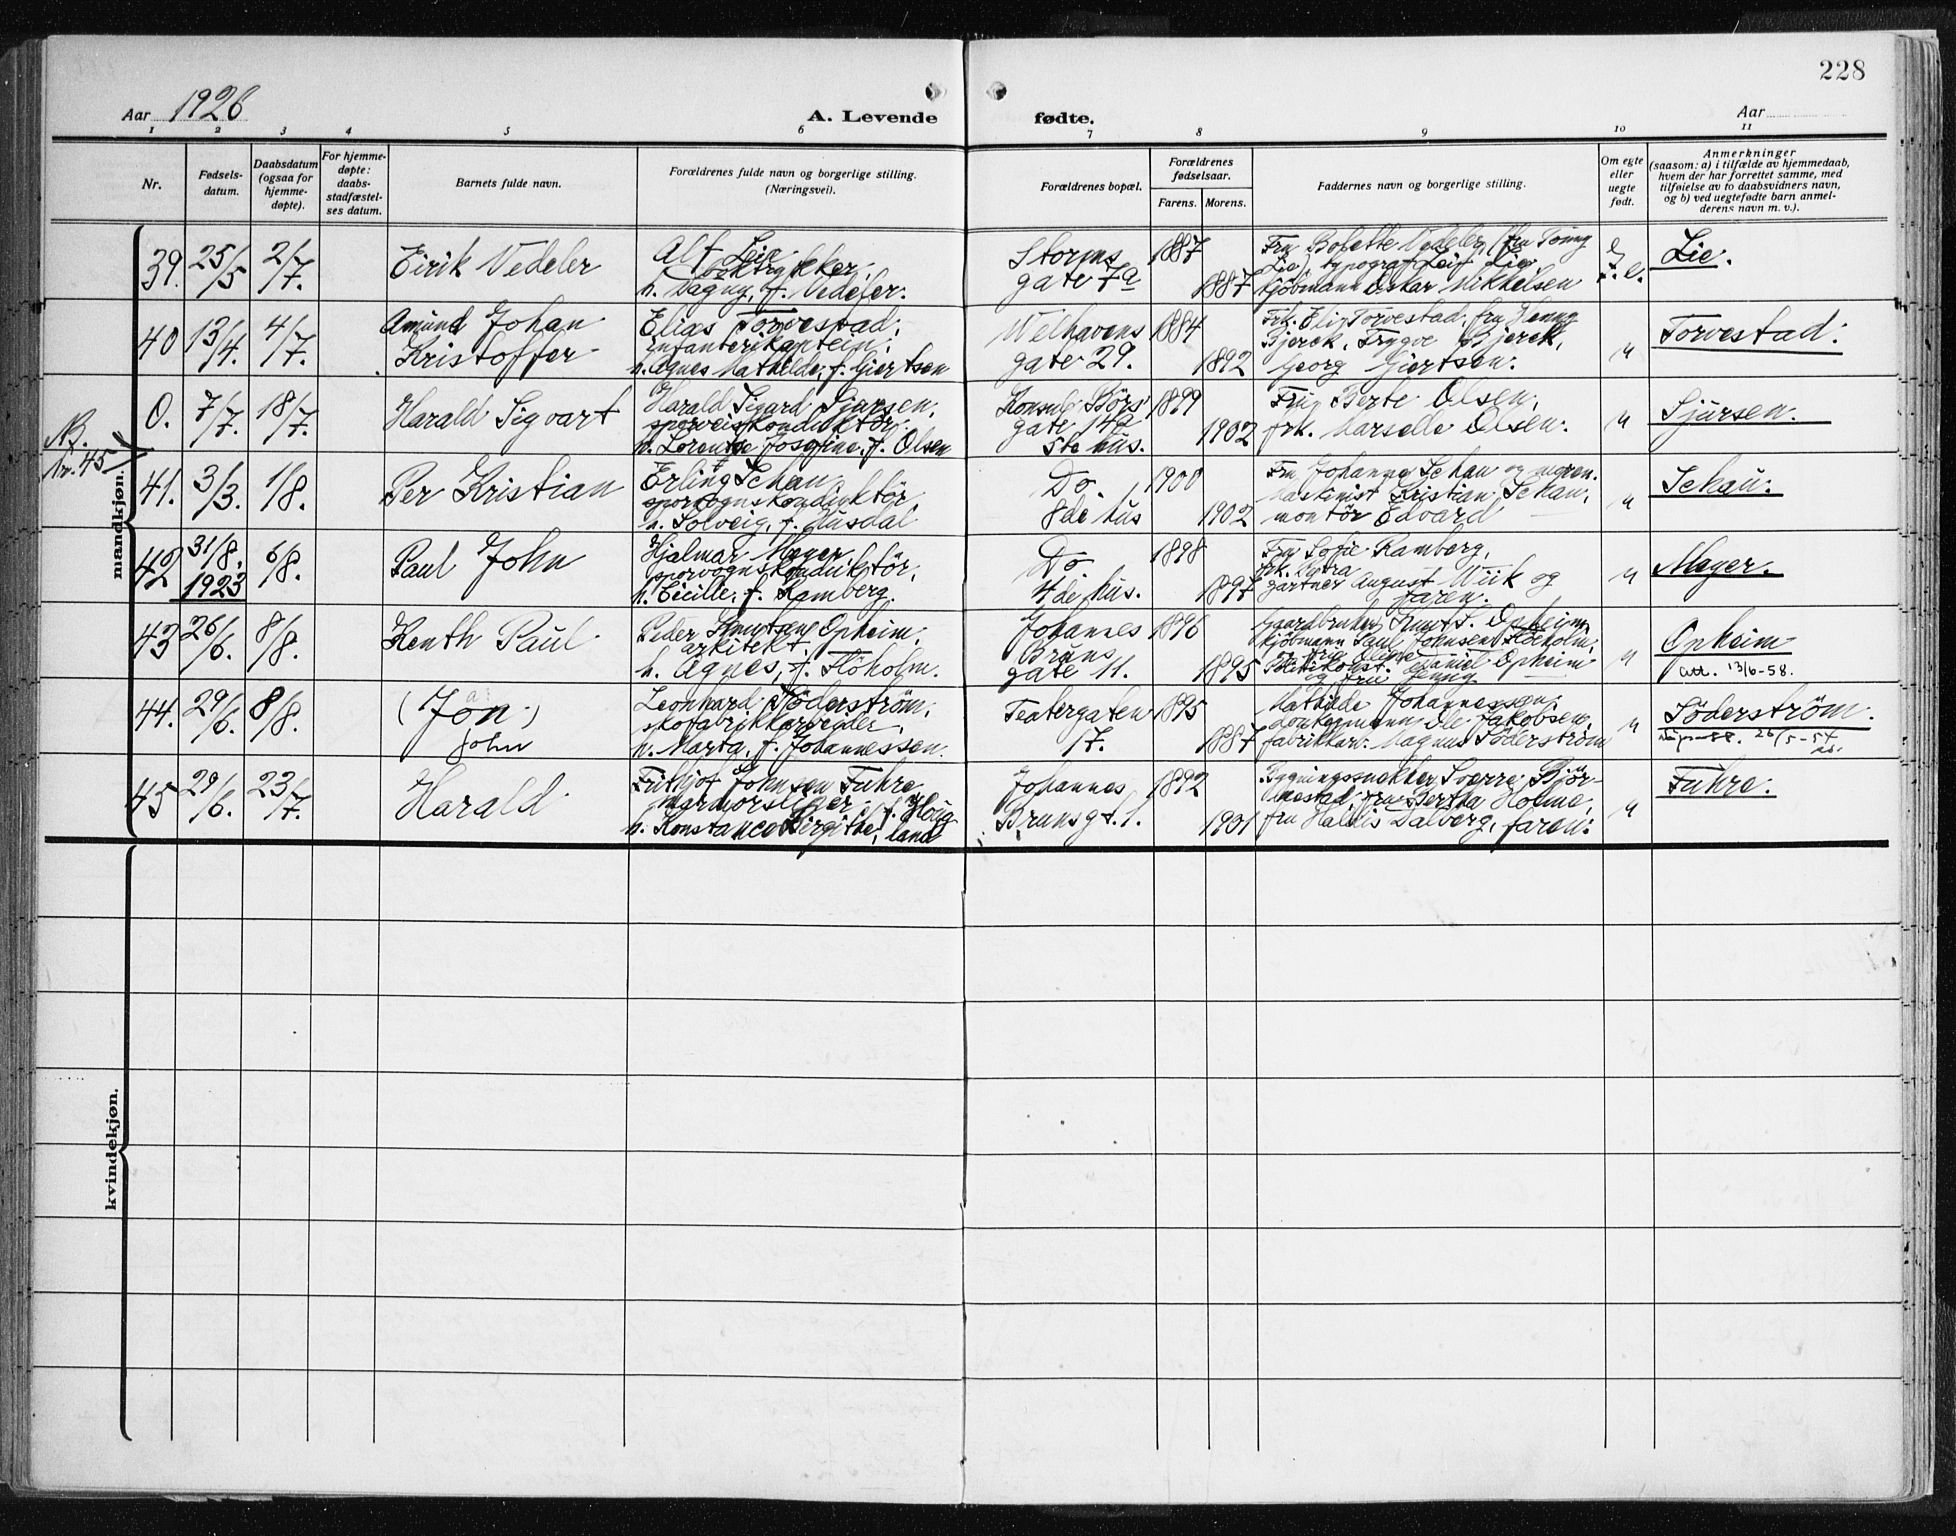 228
Aar 1926
A. Levende
fødte.
Aar
1 2 3 4 5 6 7 8 9 10 11
Nr.
Fødsels-
datum.
Daabsdatum
(ogsaa for
hjemme-
døpte).
For hjemme-
døpte:
daabs-
stadfæstel-
ses datum.
Barnets fulde navn.
Forældrenes fulde navn og borgerlige stilling.
(Næringsvei).
Forældrenes bopæl.
Forældrenes
fødselsaar.
Farens. Morens.
Faddernes navn og borgerlige stilling.
Om egte
eller
uegte
født.
Anmerkninger
(saasom: a) i tilfælde av hjemmedaab,
hvem der har forrettet samme, med
tilføielse av to daabsvidners navn,
og b) ved uegtefødte barn anmel-
derens navn m. v.).
mandkjøn.
39. 25/5 2/7. Eirik Vedeler
Alf Lie
boktrykker,
h. Dagny, f. Vedeler.
Storms
gate 7a
1887
1887
Fru Bolette Vedeler, fru
Lie, typograf Leif Lie
kjöbmann Oskar Mikkelsen
Lie.
40 13/4. 4/7. Amund Johan
Kristoffer
Elias Torvestad,
infanterikaptein,
h. Agnes Mathilde, f. Giertsen
Welhavens
gate 29.
1884
1892
Frk. Eli Torvestad, fru Henny
Bjerck, Trygve Bjerck,
Georg Giertsen.
"
Torvestad.
NB.
Nr. 45
0. 7/7. 18/7. Harald Sigvart
Harald Sigard Sjursen,
sporveiskonduktör,
h. Lorentze Josefine, f. Olsen
Konsul Börs
gate 14a
5te hus.
1899
1902
Fru Berte Olsen,
frk. Marselle Olsen.
"
Sjursen.
41. 3/3. 1/8. Per Kristian
Erling Schau,
sporvognskonduktör
h. Solveig, f. Musdal
Do.
8de hus
1900
1902
Fru Johanne Schau og
Maskinist Kristian Schau,
montör Edvard
"
Schau.
42 31/8.
1923 6/8. Paul John
Hjalmar Meyer,
sporvognskonduktör,
h. Cecilie, f. Ramberg.
Do
4de hus.
1898
1897
Fru Sofie Ramberg,
frk.
gartner August Wiik og
faren.
"
Meyer.
43 26/6. 8/8. Kenth Paul
Peder Knutsen Opheim,
arkitekt,
h. Agnes, f. Floholm.
Johannes
Bruns
gate 11.
1896
1895
Gaardbruker Knut S. Opheim
kjöbmann Paul Johnsen Floholm,
Daniel Opheim
og fru Jenny
"
Opheim
att. 13/6-58.
44. 29/6. 8/8. (Jon)
John
Leonhard Söderström,
skofabrikkarbeider,
h. Marta, f. Johannessen.
Teatergaten
17.
1895
1887
Mathilde Johannessen,
Ole Jakobsen,
fabrikkarb. Magnus Söderström
"
Söderström.
26/5-54
45 29/6. 23/7. Harald
Frithjof Johnsen Fuhre
marmorsliper
h. Konstance Birgithe, f. Houg-
land
Johannes
Brunsgt. 1.
1892
1901
Bygningssnekker Sverre Björ-
nestad, fru Bertha Holme,
fru Haldis Dalberg, faren.
"
Fuhre.
kvindekjøn.